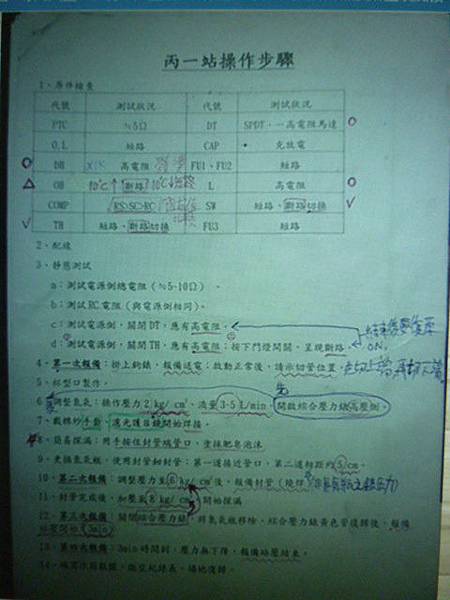 丙一站操作步驟
1、原件檢查
代號 測試狀況 代號 測試狀況
PTC ≒5Ω DT SPDT,一高電阻馬達
O.L 短路 CAP 充放電
DH 高電阻 FU1、FU2 短路
OH 10℃↑斷路 10℃↓短路 L 高電阻
COMP RS>SC>RC SW 短路、斷路切換
TH 短路、斷路切換 FU3 短路
2、配線
3、靜態測試
a:測試電源側總電阻(≒5-10Ω)。
b:測試RC電阻(與電源側相同)。
c:測試電源側,關閉DT,應有高電阻。
d:測試電源側,關閉TH,應有高電阻;按下門燈開關,呈現斷路。
ON.
4、第一次報備:掛上鉤錶,報備送電;啟動正常後,請示切管位置
5、杯型口製作。
先
6、調整氮氣:操作壓力2kg/cm²、流量3-5L/min,開啟綜合壓力錶高壓側。
7、戴棉紗手套、濾光護目鏡開始焊接。
8、簡易探漏:用手按住封管端管口,塗抹肥皂泡沫
9、更換氮氣瓶,使用封管鉗封管:第一道接近管口,第二道相距約5cm。
10、第二次報備:調整壓力至8kg/cm²後,報備封管(燒焊)
11、封管完成後,加壓氮8kg/cm²開始探漏
12、第三次報備:關閉綜合壓力錶,將氮氣瓶移除,綜合壓力錶黃色管復歸後,報備
站壓開始(3min)
13、第四次報備:3min時間到,壓力無下降,報備站壓結束。